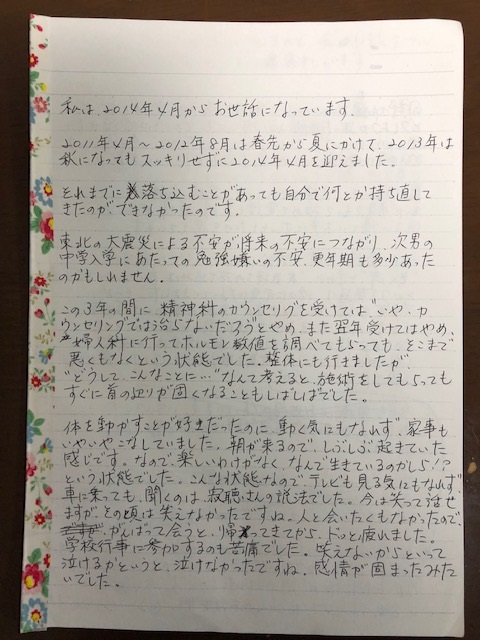 私は、2014年4月からお世話になっています。
2011年4月～2012年8月は春先から夏にかけて、2013年は
秋になってもスッキリせずに2014年4月を迎えました。
それまでに落ち込むことがあっても自分で何とか持ち直して
きたのが、できなかったのです。
東北の大震災による不安が将来の不安につながり、次男の
中学入学にあたっての勉強嫌いの不安、更年期も多少あった
のかもしれません。
この3年の間に、精神科のカウンセリングを受けては“いや、カ
ウンセリングでは治らないだろう”とやめ、また翌年受けてはやめ、
婦人科に行ってホルモン数値を調べてもらっても、そこまで
悪くもなくという状態でした。整体にも行きましたが、
“どうして、こんなことに…”なんて考えると、施術をしてもらっても
すぐに首の辺りが固くなることもしばしばでした。
体を動かすことが好きだったのに、動く気にもなれず、家事も
いやいやこなしていました。朝が来るので、しぶしぶ起きていた
感じです。なので、楽しいわけがなく、なんで生きているのかしら!?
という状態でした。こんな状態なので、テレビも見る気にもなれず
車に乗っても、聞くのは、寂聴さんの説法でした。今は笑って話せ
ますが、その頃は笑えなかったですね。人と会いたくもなかったので、
がんばって会うと、帰ってきてから、ドッと疲れました。
学校行事に参加するのも苦痛でした。笑えないからといって
泣けるかというと、泣けなかったですね。感情が固まったみた
いでした。